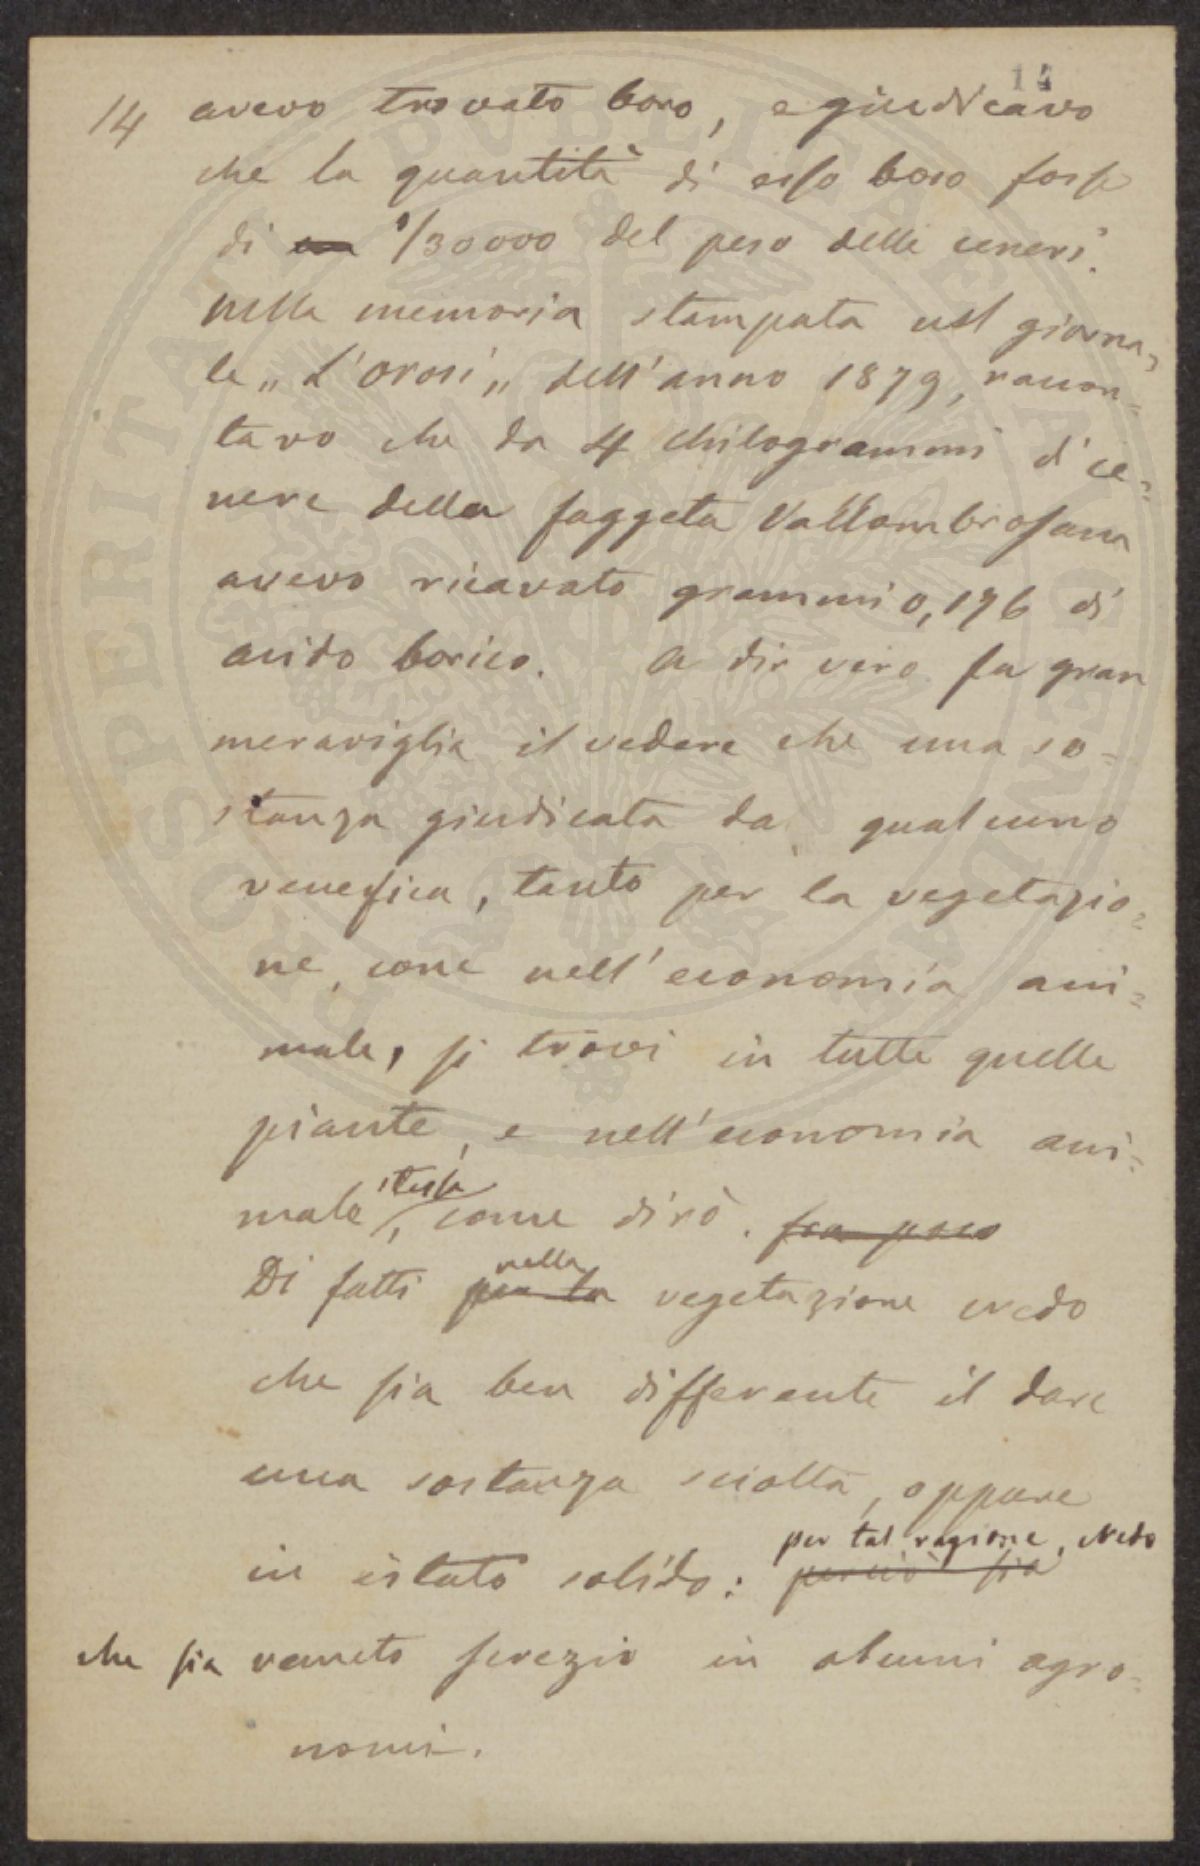 14
14 avevo trovato boro, e giudicavo
che la quantità di esso boro fosse
di 1/30000 del peso delle ceneri.
Nella memoria stampata nel giorna-
le „L'Orosi„ dell'anno 1879, raccon-
tavo che da 4 chilogrammi di ce-
nere della faggeta Vallombrosana
avevo ricavato grammi 0,196 di
acido borico. A dir vero fa gran
meraviglia il vedere che una so-
stanza giudicata da qualcuno
venefica, tanto per la vegetazio-
ne, come nell'economia ani-
male, si trovi in tutte quelle
piante, e nell'economia ani-
stessa
male, come dirò. fra poco
nella
Di fatti per la vegetazione credo
che sia ben differente il dare
una sostanza sciolta, oppure
per tal ragione, credo
in istato solido: perciò sia
che sia venuto screzio in alcuni agro-
nomi.
PROSPERITATI PVBLICAE AVGENDAE